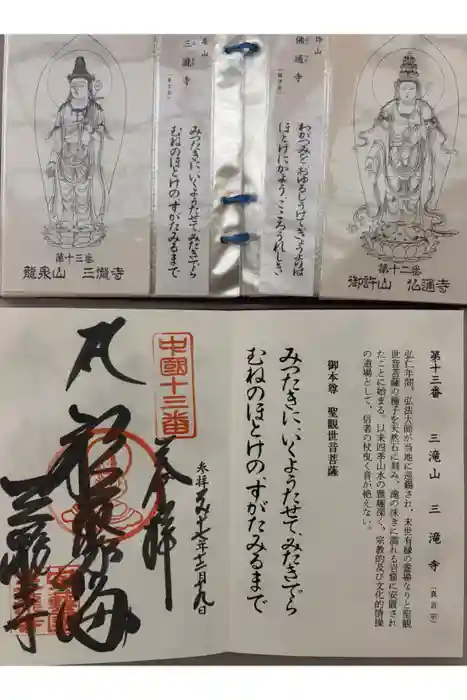 佛通寺
わがつみを おゆるしうけて ぎょうよりは
ほとけにかよう こころうれしき
第十二番
御許山 仏通寺
三瀧寺
みつたきに、いくよかたせて、みたきでら
むねのほとけの すがたみるまで
第十三番
龍泉山 三瀧寺
第十三番 三滝山 三滝寺 (真言宗)
弘仁年間、弘法大師が当地に巡錫され、末世有縁の霊場なりと聖観
世音菩薩の種子を天然石に刻み、滝の沫きに濡れる岩窟に安置され
たことに始まる。以来四季山水の雅趣深く、宗教的及び文化的情操
の道場として、信者の杖曳く音が絶えない。
御本尊 聖観世音菩薩
みつたきに、いくようたせて、みたきでら
むねのほとけの すがたみるまで
中國十三番
奉拝
三瀧寺